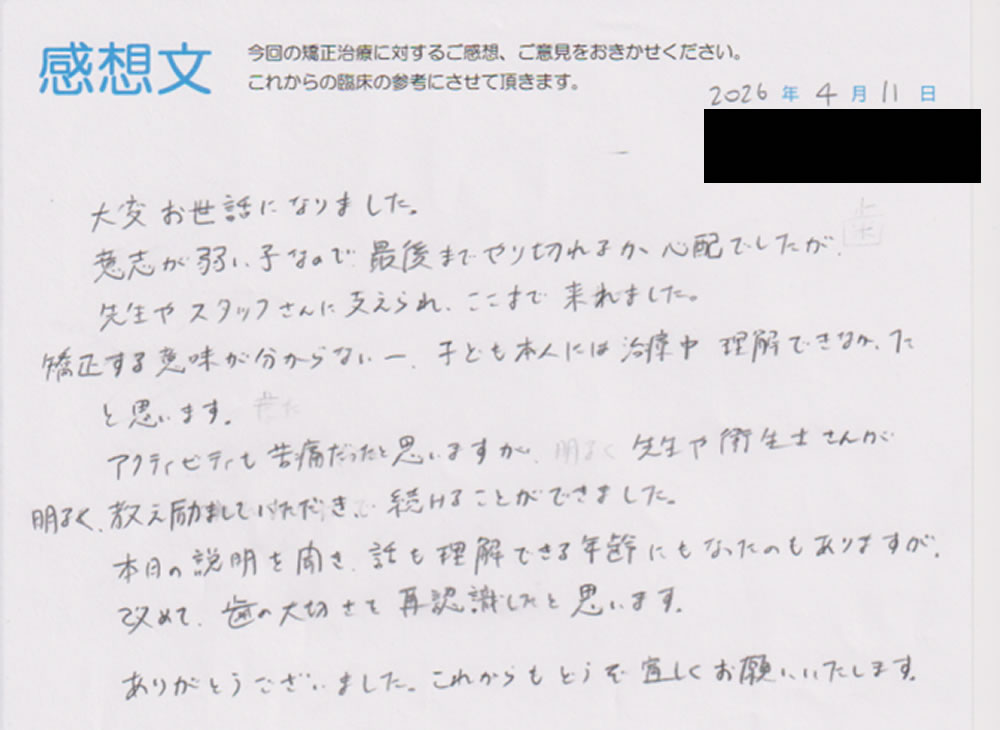 感想文
今回の矯正治療に対するご感想、ご意見をおきかせください。
これからの臨床の参考にさせて頂きます。
2026年4月11日
大変お世話になりました。
意志が弱い子なので最後までやり切れるか、心配でしたが、
先生やスタッフさんに支えられ、ここまで来れました。
矯正する意味が分からないー、子ども本人には治療中理解できなかった
と思います。
アクティビティも苦痛だったと思いますが、先生や衛生士さんが
明るく、教え励ましていただき、続けることができました。
本日の説明を聞き、話も理解できる年齢にもなったのもありますが、
改めて、歯の大切さを再認識したと思います。
ありがとうございました。これからもどうぞ宜しくお願いいたします。